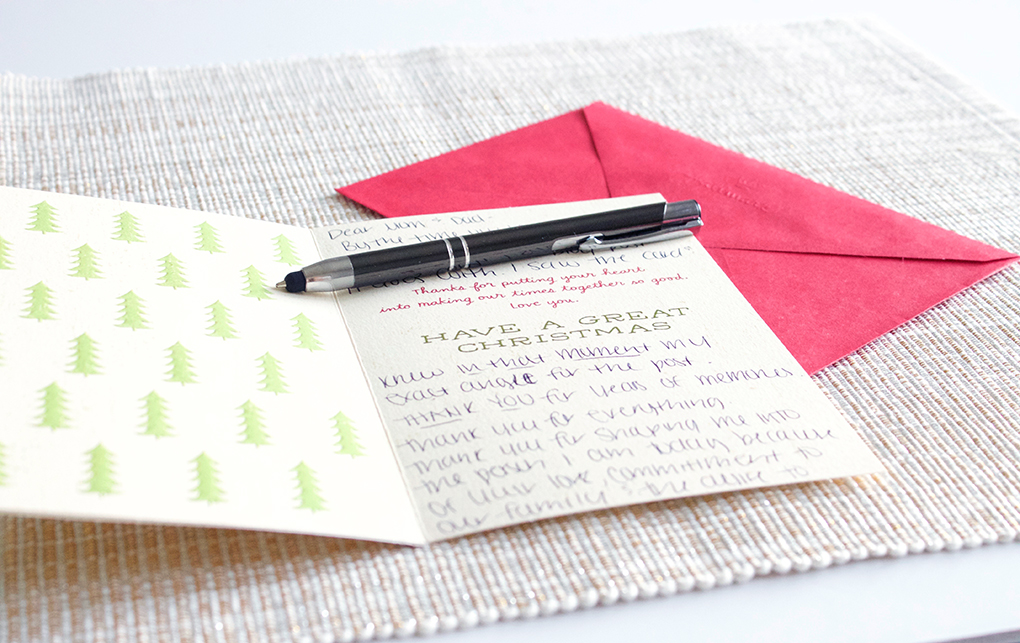 Dear Mom & Dad-
By the time
I saw the card
Thanks for putting your heart
into making our times together so good.
Love you.
HAVE A GREAT
CHRISTMAS
knew in that moment my
exact angle for the post.
THANK YOU for years of memories
thank you for everything
thank you for shaping me INTO
the person I am today because
of your love, commitment to
our family, the desire to